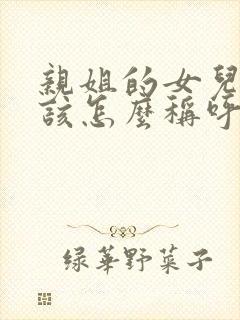 親姐的女兒
該怎麼稱呼
綠華野菜子